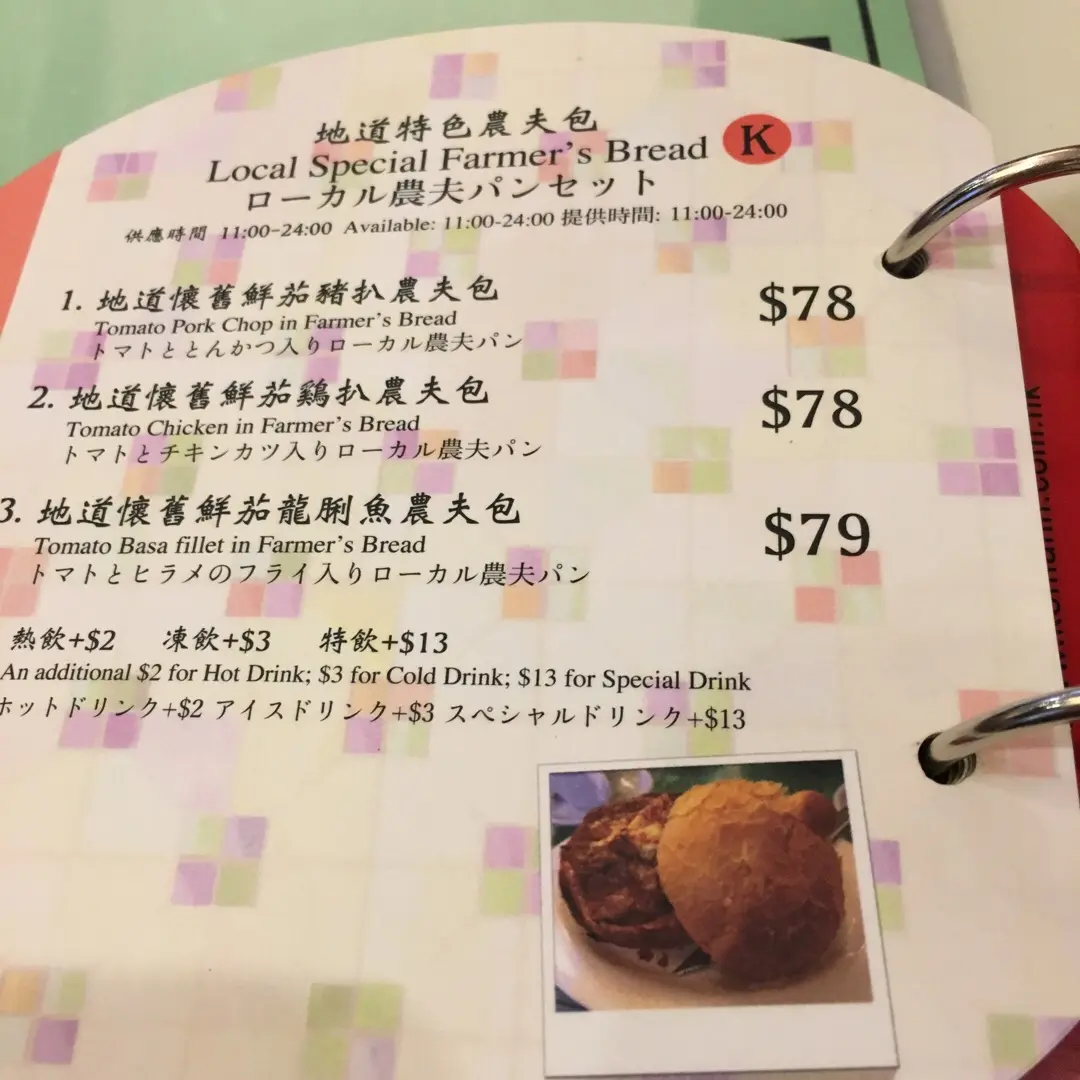 地道特色農夫包
Local Special Farmer's Bread K
ローカル農夫パンセット
供應時間 11:00-24:00 Available: 11:00-24:00 提供時間: 11:00-24:00
1. 地道懷舊鮮茄豬扒農夫包 $78
Tomato Pork Chop in Farmer's Bread
トマトととんかつ入りローカル農夫パン
2. 地道懷舊鮮茄鷄扒農夫包 $78
Tomato Chicken in Farmer's Bread
トマトとチキンカツ入りローカル農夫パン
3. 地道懷舊鮮茄龍脷魚農夫包 $79
Tomato Basa fillet in Farmer's Bread
トマトとヒラメのフライ入りローカル農夫パン
熱飲+$2 凍飲+$3 特飲+$13
An additional $2 for Hot Drink; $3 for Cold Drink; $13 for Special Drink
ホットドリンク+$2 アイスドリンク+$3 スペシャルドリンク+$13